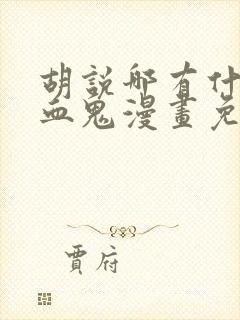 胡說哪有什
血鬼漫畫免
賈府